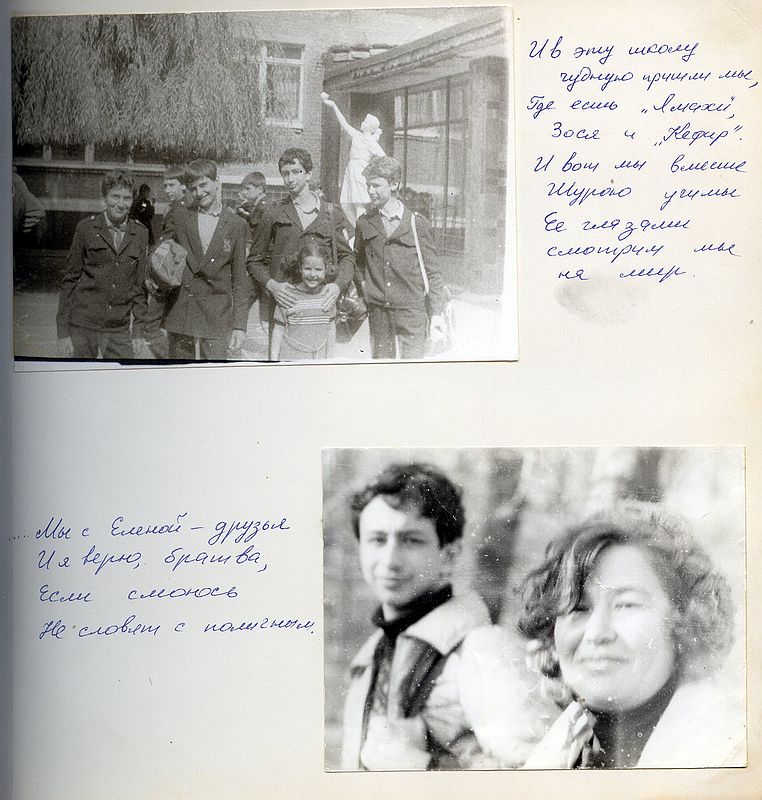 И в эту школу
чудную пришли мы,
Где есть „Ямаха",
Зося и „Кефир".
И вот мы вместе
Шурою учимы
Её глазами
смотрим мы
на мир.
.... Мы с Еленой – друзья
И я верю, братва,
Если смоюсь
Не словят с поличным.